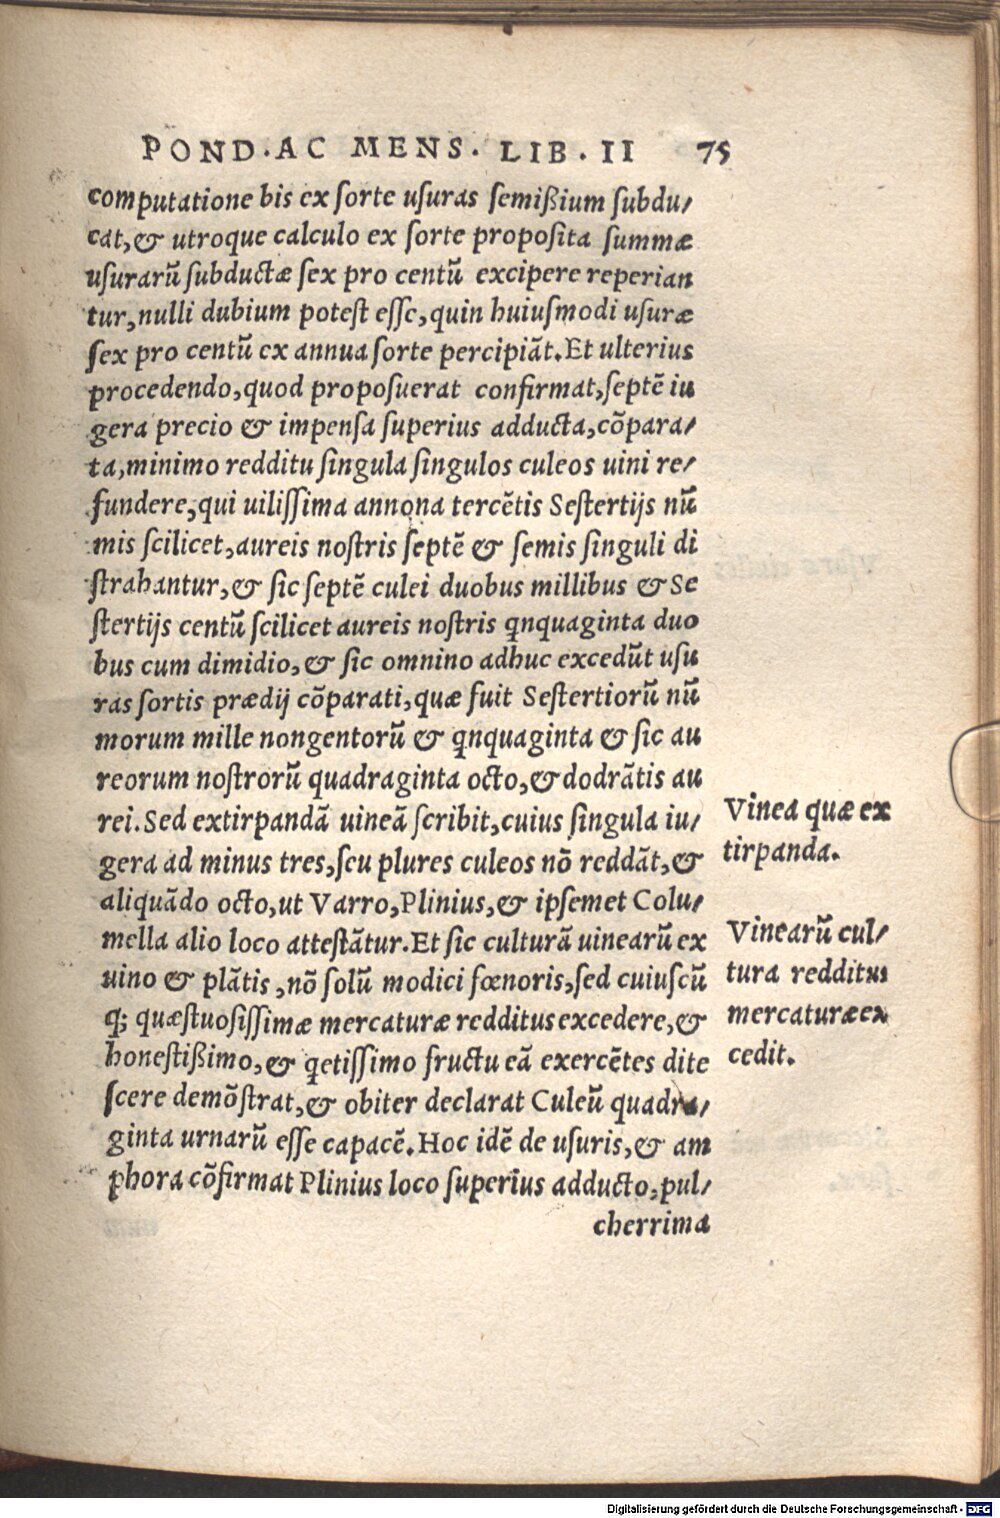 POND. AC MENS. LIB. II 75
computatione bis ex ſorte uſuras ſemißium ſubdu/
cat, & utroque calculo ex ſorte propoſita ſummæ
uſurarũ ſubductæ ſex pro centũ excipere reperian
tur, nulli dubium poteſt eſſe, quin huiuſmodi uſuræ
ſex pro centũ ex annua ſorte percipiãt. Et ulterius
procedendo, quod propoſuerat confirmat, ſeptẽ iu
gera precio & impenſa ſuperius adducta, cõpara/
ta, minimo redditu ſingula ſingulos culeos uini re/
fundere, qui uiliſſima annona tercẽtis Seſtertijs nũ
mis ſcilicet, aureis noſtris ſeptẽ & ſemis ſinguli di
ſtrahantur, & ſic ſeptẽ culei duobus millibus & Se
ſtertijs centũ ſcilicet aureis noſtris qnquaginta duo
bus cum dimidio, & ſic omnino adhuc excedũt uſu
ras ſortis prædij cõparati, quæ fuit Seſtertiorũ nũ
morum mille nongentorũ & qnquaginta & ſic au
reorum noſtrorũ quadraginta octo, & dodrãtis au
rei. Sed extirpandã uineã ſcribit, cuius ſingula iu/
gera ad minus tres, ſeu plures culeos nõ reddãt, &
aliquãdo octo, ut Varro, Plinius, & ipſemet Colu/
mella alio loco atteſtãtur. Et ſic culturã uinearũ ex
uino & plãtis, nõ ſolũ modici fœnoris, ſed cuiuſcũ
q; quæſtuoſiſſimæ mercaturæ redditus excedere, &
honeſtißimo, & qetiſſimo fructu eã exercẽtes dite
ſcere demõſtrat, & obiter declarat Culeũ quadra/
ginta urnarũ eſſe capacẽ. Hoc idẽ de uſuris, & am
phora cõfirmat Plinius loco ſuperius adducto, pul/
cherrima
Vinea quæ ex
tirpanda.
Vinearũ cul/
tura redditus
mercaturæ ex
cedit.
Digitalisierung gefördert durch die Deutsche Forschungsgemeinschaft - DFG